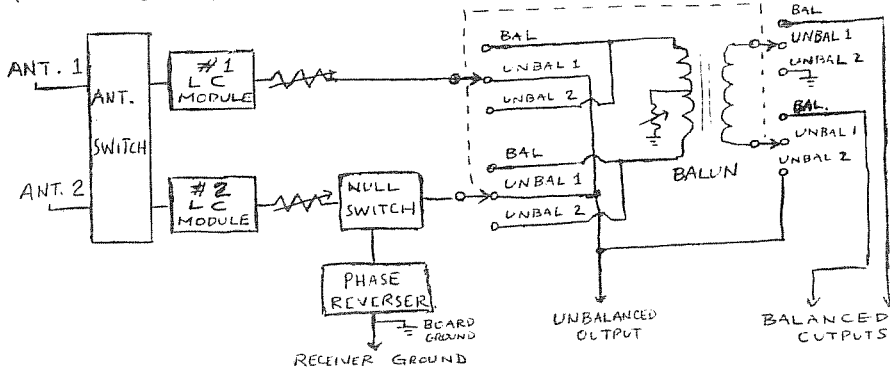 ANT. 1
ANT. 2
ANT.
SWITCH
#1
LC
MODULE
#2
LC
MODULE
NULL
SWITCH
PHASE
REVERSER
BOARD
GROUND
RECEIVER GROUND
BAL
UNBAL 1
UNBAL 2
BAL
UNBAL 1
UNBAL 2
BALUN
BAL
UNBAL 1
UNBAL 2
BAL.
UNBAL 1
UNBAL 2
UNBALANCED
OUTPUT
BALANCED
OUTPUTS